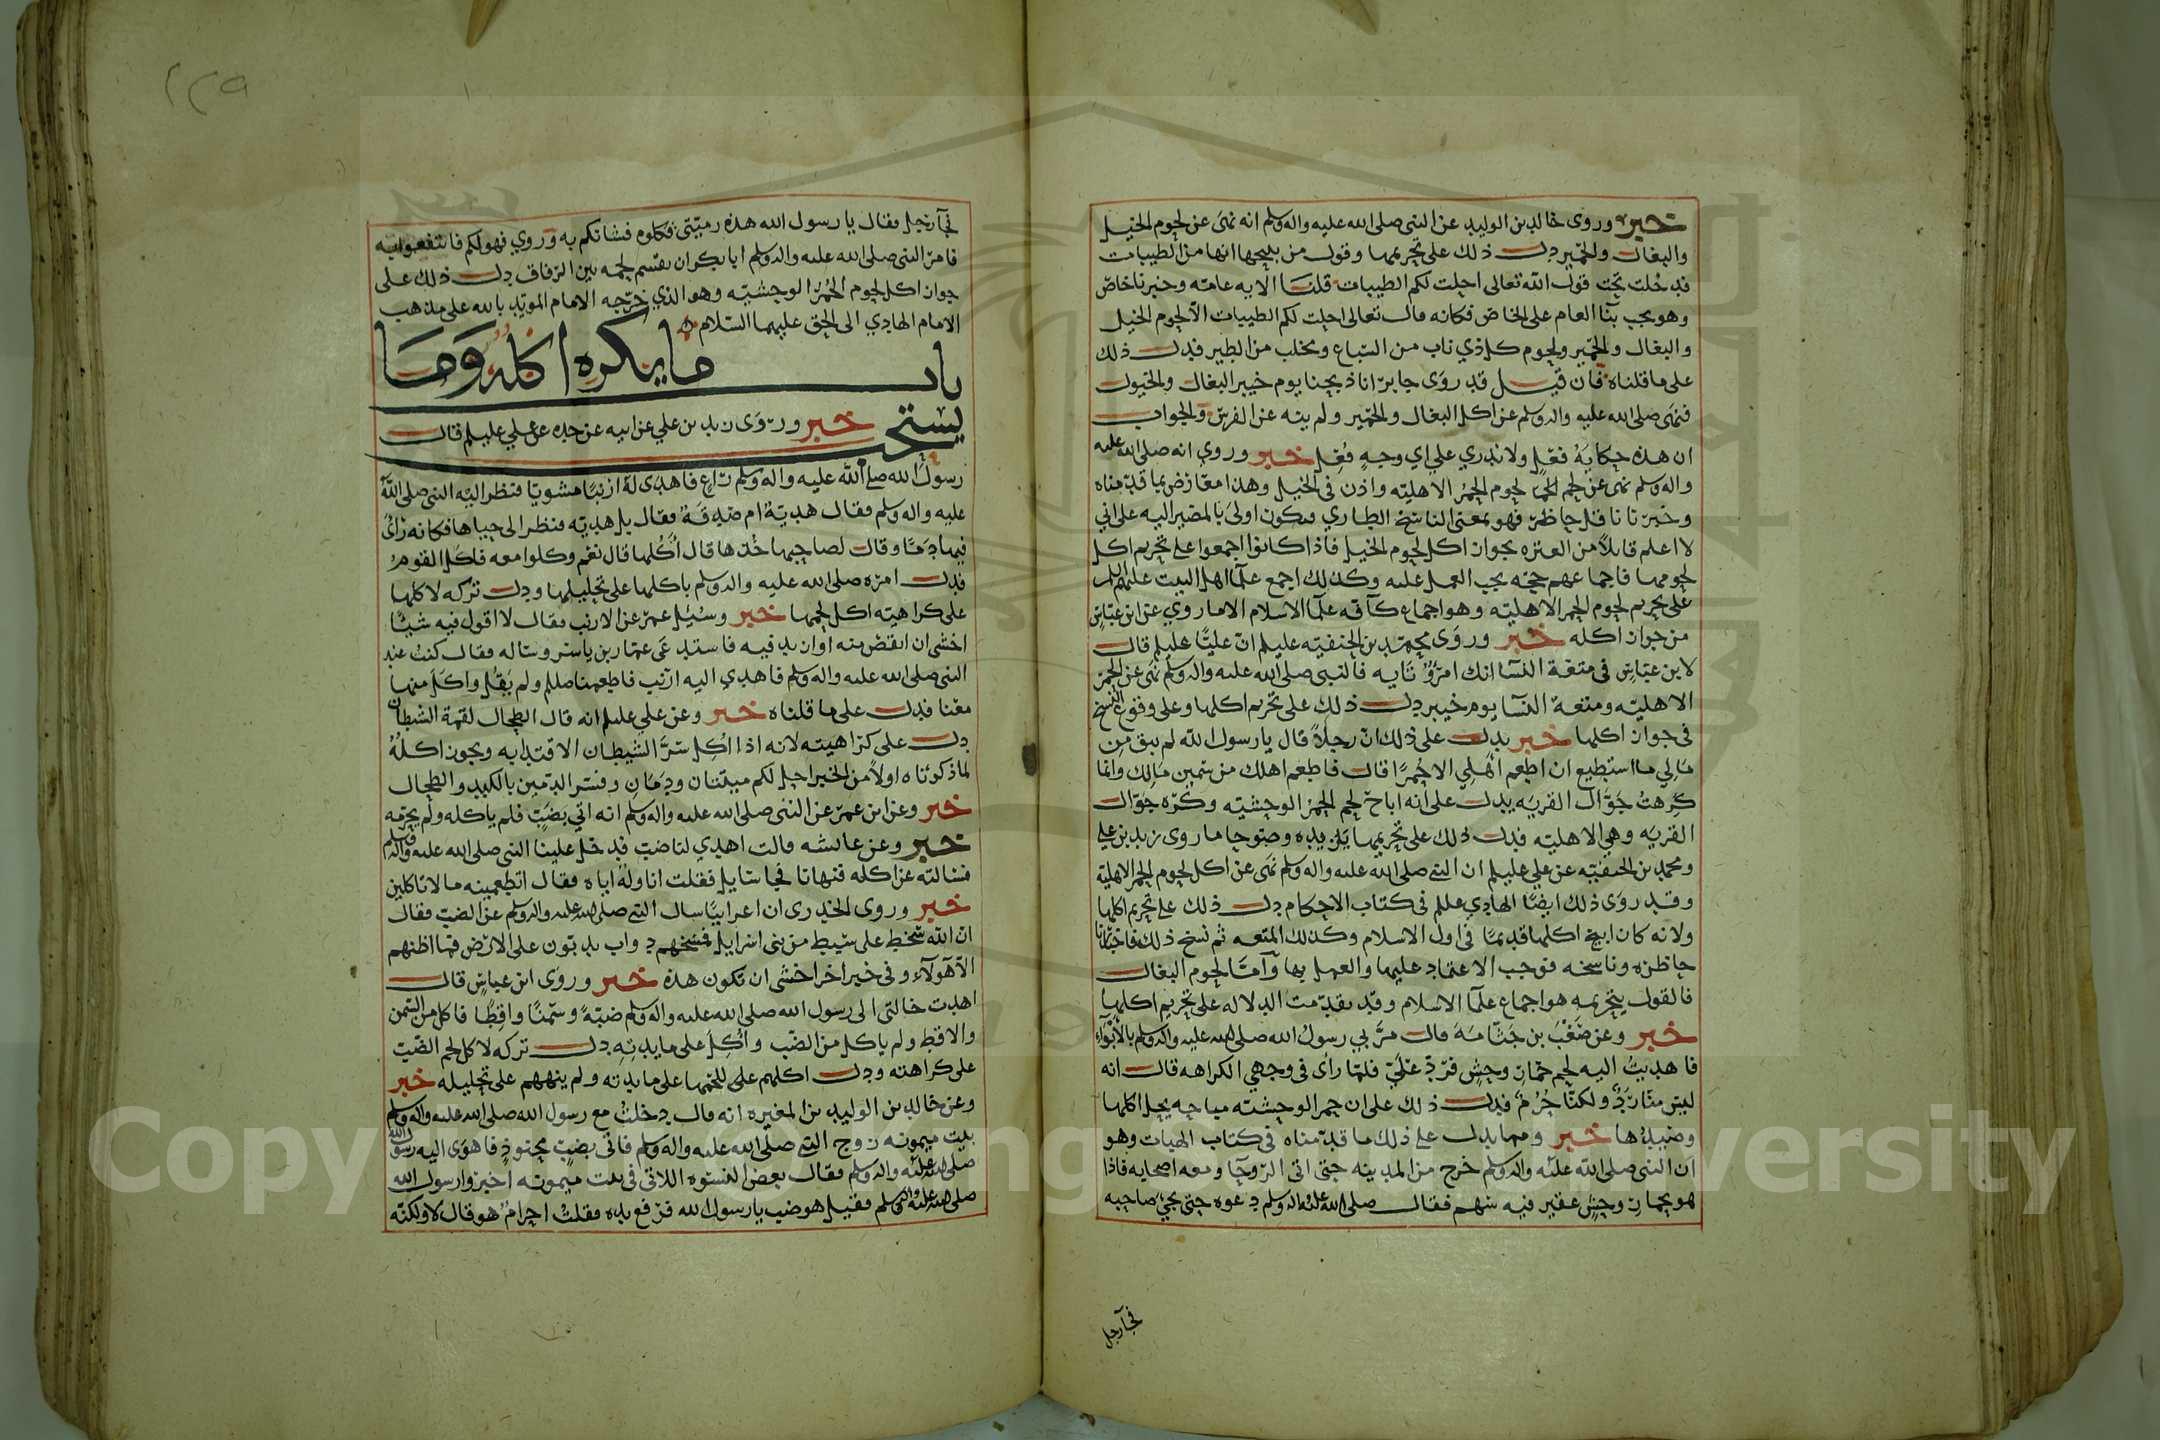 خبر وروى خالد بن الوليد عن النبي صلى الله عليه واله وسلم انه نهى عن لحوم الخيل
والبغال والحمير دل ذلك على تحريمها وقول من يبيحها انها من الطيبات
قد خلت تحت قول الله تعالى احلت لكم الطيبات قلنا الايه عامه وخبرنا خاص
وهو يجب بنا العام على الخاص فكانه قال تعالى احلت لكم الطيبات الا لحوم الخيل
والبغال والحمير ولحوم كل ذي ناب من السباع ومخلب من الطير فدل ذلك
على ما قلناه فان قيل قد روى جابر انا ذبحنا يوم خيبر البغال والخيول
فنهى صلى الله عليه واله وسلم عن اكل البغال والحمير ولم ينه عن الفرس والجواب
ان هذه حكاية فعل ولا ندري على اي وجه فعل خبر وروي انه صلى الله عليه
واله وسلم نهى عن لحم لحوم الحمر الاهليه واذن في الخيل وهذا معارض بما قدمناه
وخبرنا ناقل حاظر فهو بمعنى الناسخ الطاري فيكون اولى بالمصير اليه على اني
لا اعلم قايلا من العتره بجواز اكل لحوم الخيل فاذا كانوا اجمعوا على تحريم اكل
لحومها فاجماعهم حجه يجب العمل عليه وكذلك اجمع علما اهل البيت عليهم السلام
على تحريم لحوم الحمر الاهليه وهو اجماع كآفه علما الاسلام الا ما روي عن ابن عباس
من جواز اكله خبر وروى محمد بن الحنفيه عليلم ان عليا عليلم قال
لابن عباس في متعة النسا انك امرؤ تايه فالنبي صلى الله عليه واله وسلم نهى عن الحمر
الاهليه ومتعة النسا يوم خيبر دل ذلك على تحريم اكلها وعلى وقوع النسخ
في جواز اكلها خبر يدل على ذلك ان رجلا قال يا رسول الله لم يبق من
مالي ما استطيع ان اطعم اهلي الا حمرا قال فاطعم اهلك من سمين مالك وانما
كرهت جوال القريه يدل على انه اباح لحم الحمر الوحشيه وكره جوال
القريه وهي الاهليه فدل ذلك على تحريمها يزيده وضوحا ما روى زيد بن علي
ومحمد بن الحنفيه عن علي عليلم ان النبي صلى الله عليه واله وسلم نهى عن اكل لحوم الحمر الاهلية
وقد روى ذلك ايضا الهادي عللم في كتاب الاحكام دل ذلك على تحريم اكلها
ولانه كان ابيح اكلها قديما في اول الاسلام وكذلك المتعه ثم نسخ ذلك فاخبارنا
حاظره وناسخه فوجب الاعتماد عليها والعمل بها وآما لحوم البغال
فالقول بتحريمه هو اجماع علما الاسلام وقد تقدمت الدلاله على تحريم اكلها
خبر وعن ضعب بن جثامه قال مر بي رسول الله صلى الله عليه واله وسلم بالابوآء
فاهديت اليه لحم حمار وحش فرد علي فلما رأى في وجهي الكراهه قال انه
ليس منا رد ولكنا حرم فدل ذلك على ان حمر الوحشيه مباحه يحل اكلها
وصيدها خبر ومما يدل على ذلك ما قدمناه في كتاب الهبات وهو
ان النبي صلى الله عليه واله وسلم خرج من المدينه حتى اتى الروحا ومعه اصحابه فاذا
هو بحمار وحش عقير فيه سهم فقال صلى الله عليه واله وسلم دعوه حتى يجئ صاحبه
فجآ رجل
١٢٩
فجآ رجل فقال يا رسول الله هذه رميتي فكلوه فشانكم به وروي فهو لكم فانتفعوا به
فامر النبي صلى الله عليه واله وسلم ابا بكر ان يقسم لحمه بين الرفاق دل ذلك على
جواز اكل لحوم الحمر الوحشيه وهو الذي خرجه الامام المويد بالله على مذهب
الامام الهادي الى الحق عليهما السلام
باب ما يكره اكله وما
يستحب خبر وروى زيد بن علي عن ابيه عن جده عن علي عليلم قال
رسول الله صلى الله عليه واله وسلم راع فاهدى له ارنبا مشويا فنظر اليه النبي صلى الله
عليه واله وسلم فقال هدية ام صدقة فقال بل هديه فنظر الى حياها فكانه رائ
فيها دما وقال لصاحبها خذها قال أكلها قال نعم وكلوا معه فاكل القوم
فدل امره صلى الله عليه واله وسلم باكلها على تحليلها ودل تركه لاكلها
على كراهيته اكل لحمها خبر وسئل عمر عن الارنب فقال لا اقول فيه شيئا
اخشى ان انقص منه او ازيد فيه فاستدعى عمار بن ياسر وساله فقال كنت عند
النبي صلى الله عليه واله وسلم فاهدي اليه ارنب فاطعمنا صللم ولم يقل واكل منها
معنا فدل على ما قلناه خبر وعن علي عليلم انه قال الطحال لقمة الشيطان
دل على كراهيته لانه اذا اكل سر الشيطان الاقتدا به ويجوز اكله
لما ذكرناه اولا من الخبر احل لكم ميتتان ودمان وفسر الدمين بالكبد والطحال
خبر وعن ابن عمر عن النبي صلى الله عليه واله وسلم انه اتي بضب فلم ياكله ولم يحرمه
خبر وعن عائشه قالت اهدي لنا ضب فدخل علينا النبي صلى الله عليه واله وسلم
فسالته عن اكله فنهانا فجا سايل فقلت اناوله اياه فقال اتطعمينه ما لا تاكلين
خبر وروى الخدري ان اعرابيا سال النبي صلى الله عليه واله وسلم عن الضب فقال
ان الله سخط على سبط من بني اسرايل فمسخهم دواب يدبون على الارض فما اظنهم
الا هولآء وفي خبر اخر اخشى ان تكون هذه خبر وروى ابن عباس قال
اهدت خالتي الى رسول الله صلى الله عليه واله وسلم ضبة وسمنا واقطا فاكل من السمن
والاقط ولم ياكل من الضب واكل على مايدته دل تركه لاكل لحم الضب
على كراهته ودل اكلهم على للحمها على مايدته ولم ينههم على تحليله خبر
وعن خالد بن الوليد بن المغيره انه قال دخلت مع رسول الله صلى الله عليه واله وسلم
بيت ميمونه زوج النبي صلى الله عليه واله وسلم فاتي بضب محنوذ فاهوى اليه رسول الله
صلى الله عليه واله وسلم فقال بعض النسوه اللاتي في بيت ميمونه اخبروا رسول الله
صلى الله عليه واله وسلم فقيل هو ضب يا رسول الله فرفع يده فقلت احرام هو قال لا ولكنه